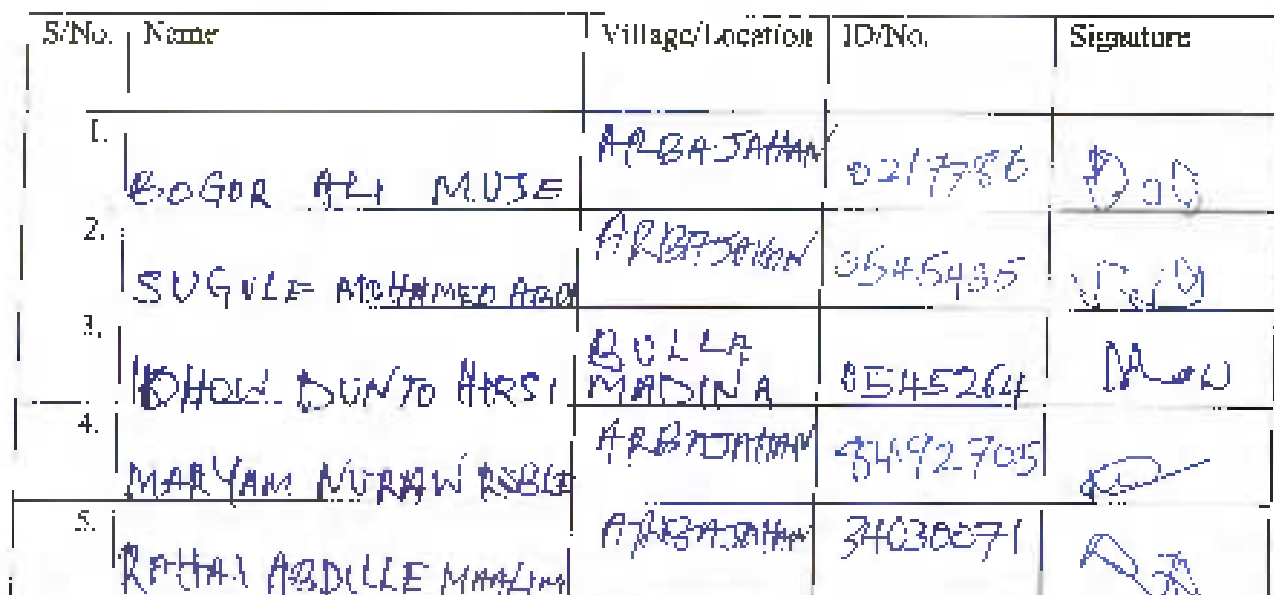 S/No. Name Village/Location ID/No. Signature
1. BOGOR ALI MUSE ARBAJAHAN 0217786
2. SUGULE MOHAMED ABDI ARBAJAHAN 0545435
3. DHOLL DUNTO HIRSI BULLA MADINA 8545264
4. MARYAM NURAW ROBLE ARBAJAHAN 3492705
5. ABDULLE MAALIM ARBAJAHAN 34030071